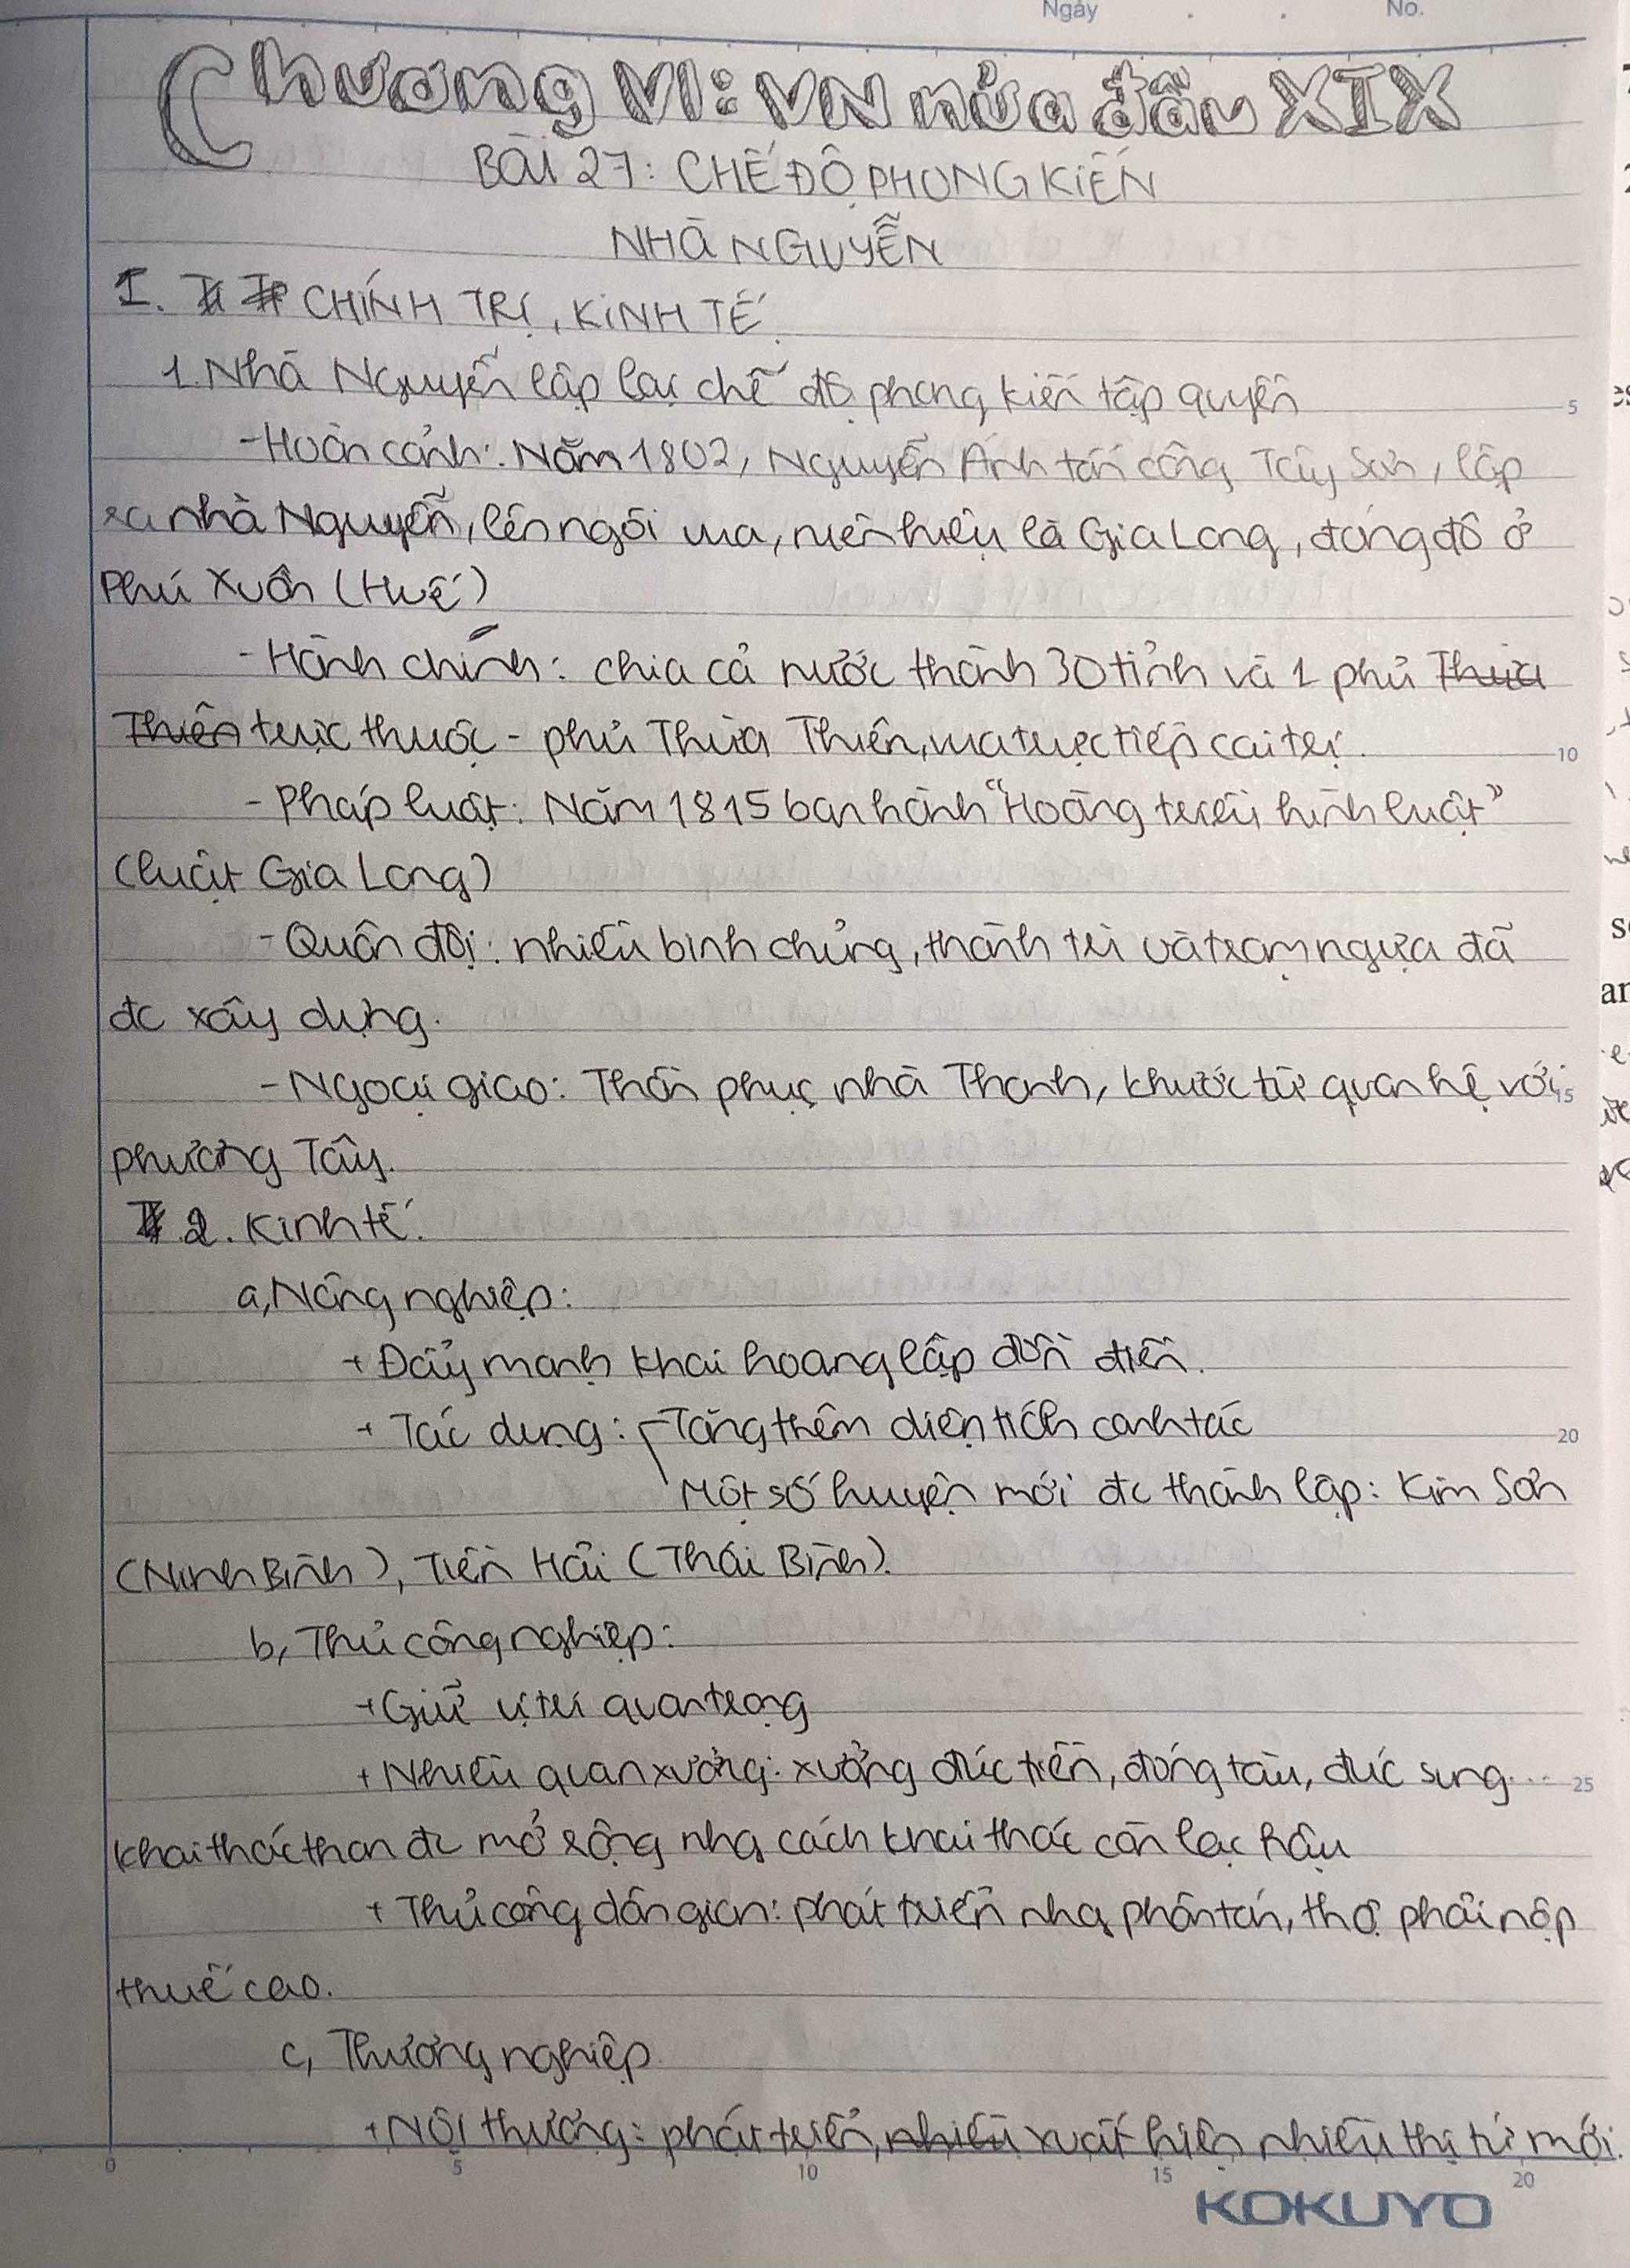 Ngày . . No.
Chương VI: VN nửa đầu XIX
BÀI 27: CHẾ ĐỘ PHONG KIẾN
NHÀ NGUYỄN
I. CHÍNH TRỊ, KINH TẾ.
1. Nhà Nguyễn lập lại chế độ phong kiến tập quyền
5
- Hoàn cảnh: Năm 1802, Nguyễn Ánh tấn công Tây Sơn, lập
ra nhà Nguyễn, lên ngôi vua, niên hiệu là Gia Long, đóng đô ở
Phú Xuân (Huế)
- Hành chính: chia cả nước thành 30 tỉnh và 1 phủ Thừa
Thiên trực thuộc - phủ Thừa Thiên, vua trực tiếp cai trị.
10
- Pháp luật: Năm 1815 ban hành "Hoàng triều hình luật"
(luật Gia Long)
- Quân đội: nhiều binh chủng, thành trì và trạm ngựa đã
đc xây dựng.
- Ngoại giao: Thần phục nhà Thanh, khước từ quan hệ với
15
phương Tây.
2. Kinh tế.
a, Nông nghiệp:
+ Đẩy mạnh khai hoang lập đồn điền.
+ Tác dụng: Tăng thêm diện tích canh tác
20
Một số huyện mới đc thành lập: Kim Sơn
(Ninh Bình), Tiền Hải (Thái Bình).
b, Thủ công nghiệp:
+ Giữ vị trí quan trọng
+ Nhiều quan xưởng: xưởng đúc tiền, đóng tàu, đúc súng...
25
khai thác than đc mở rộng nhg cách khai thác còn lạc hậu
+ Thủ công dân gian: phát triển nhg phân tán, thợ phải nộp
thuế cao.
c, Thương nghiệp
+ Nội thương: phát triển, nhiều xuất hiện nhiều thị tứ mới.
0 5 10 15 20
KOKUYO